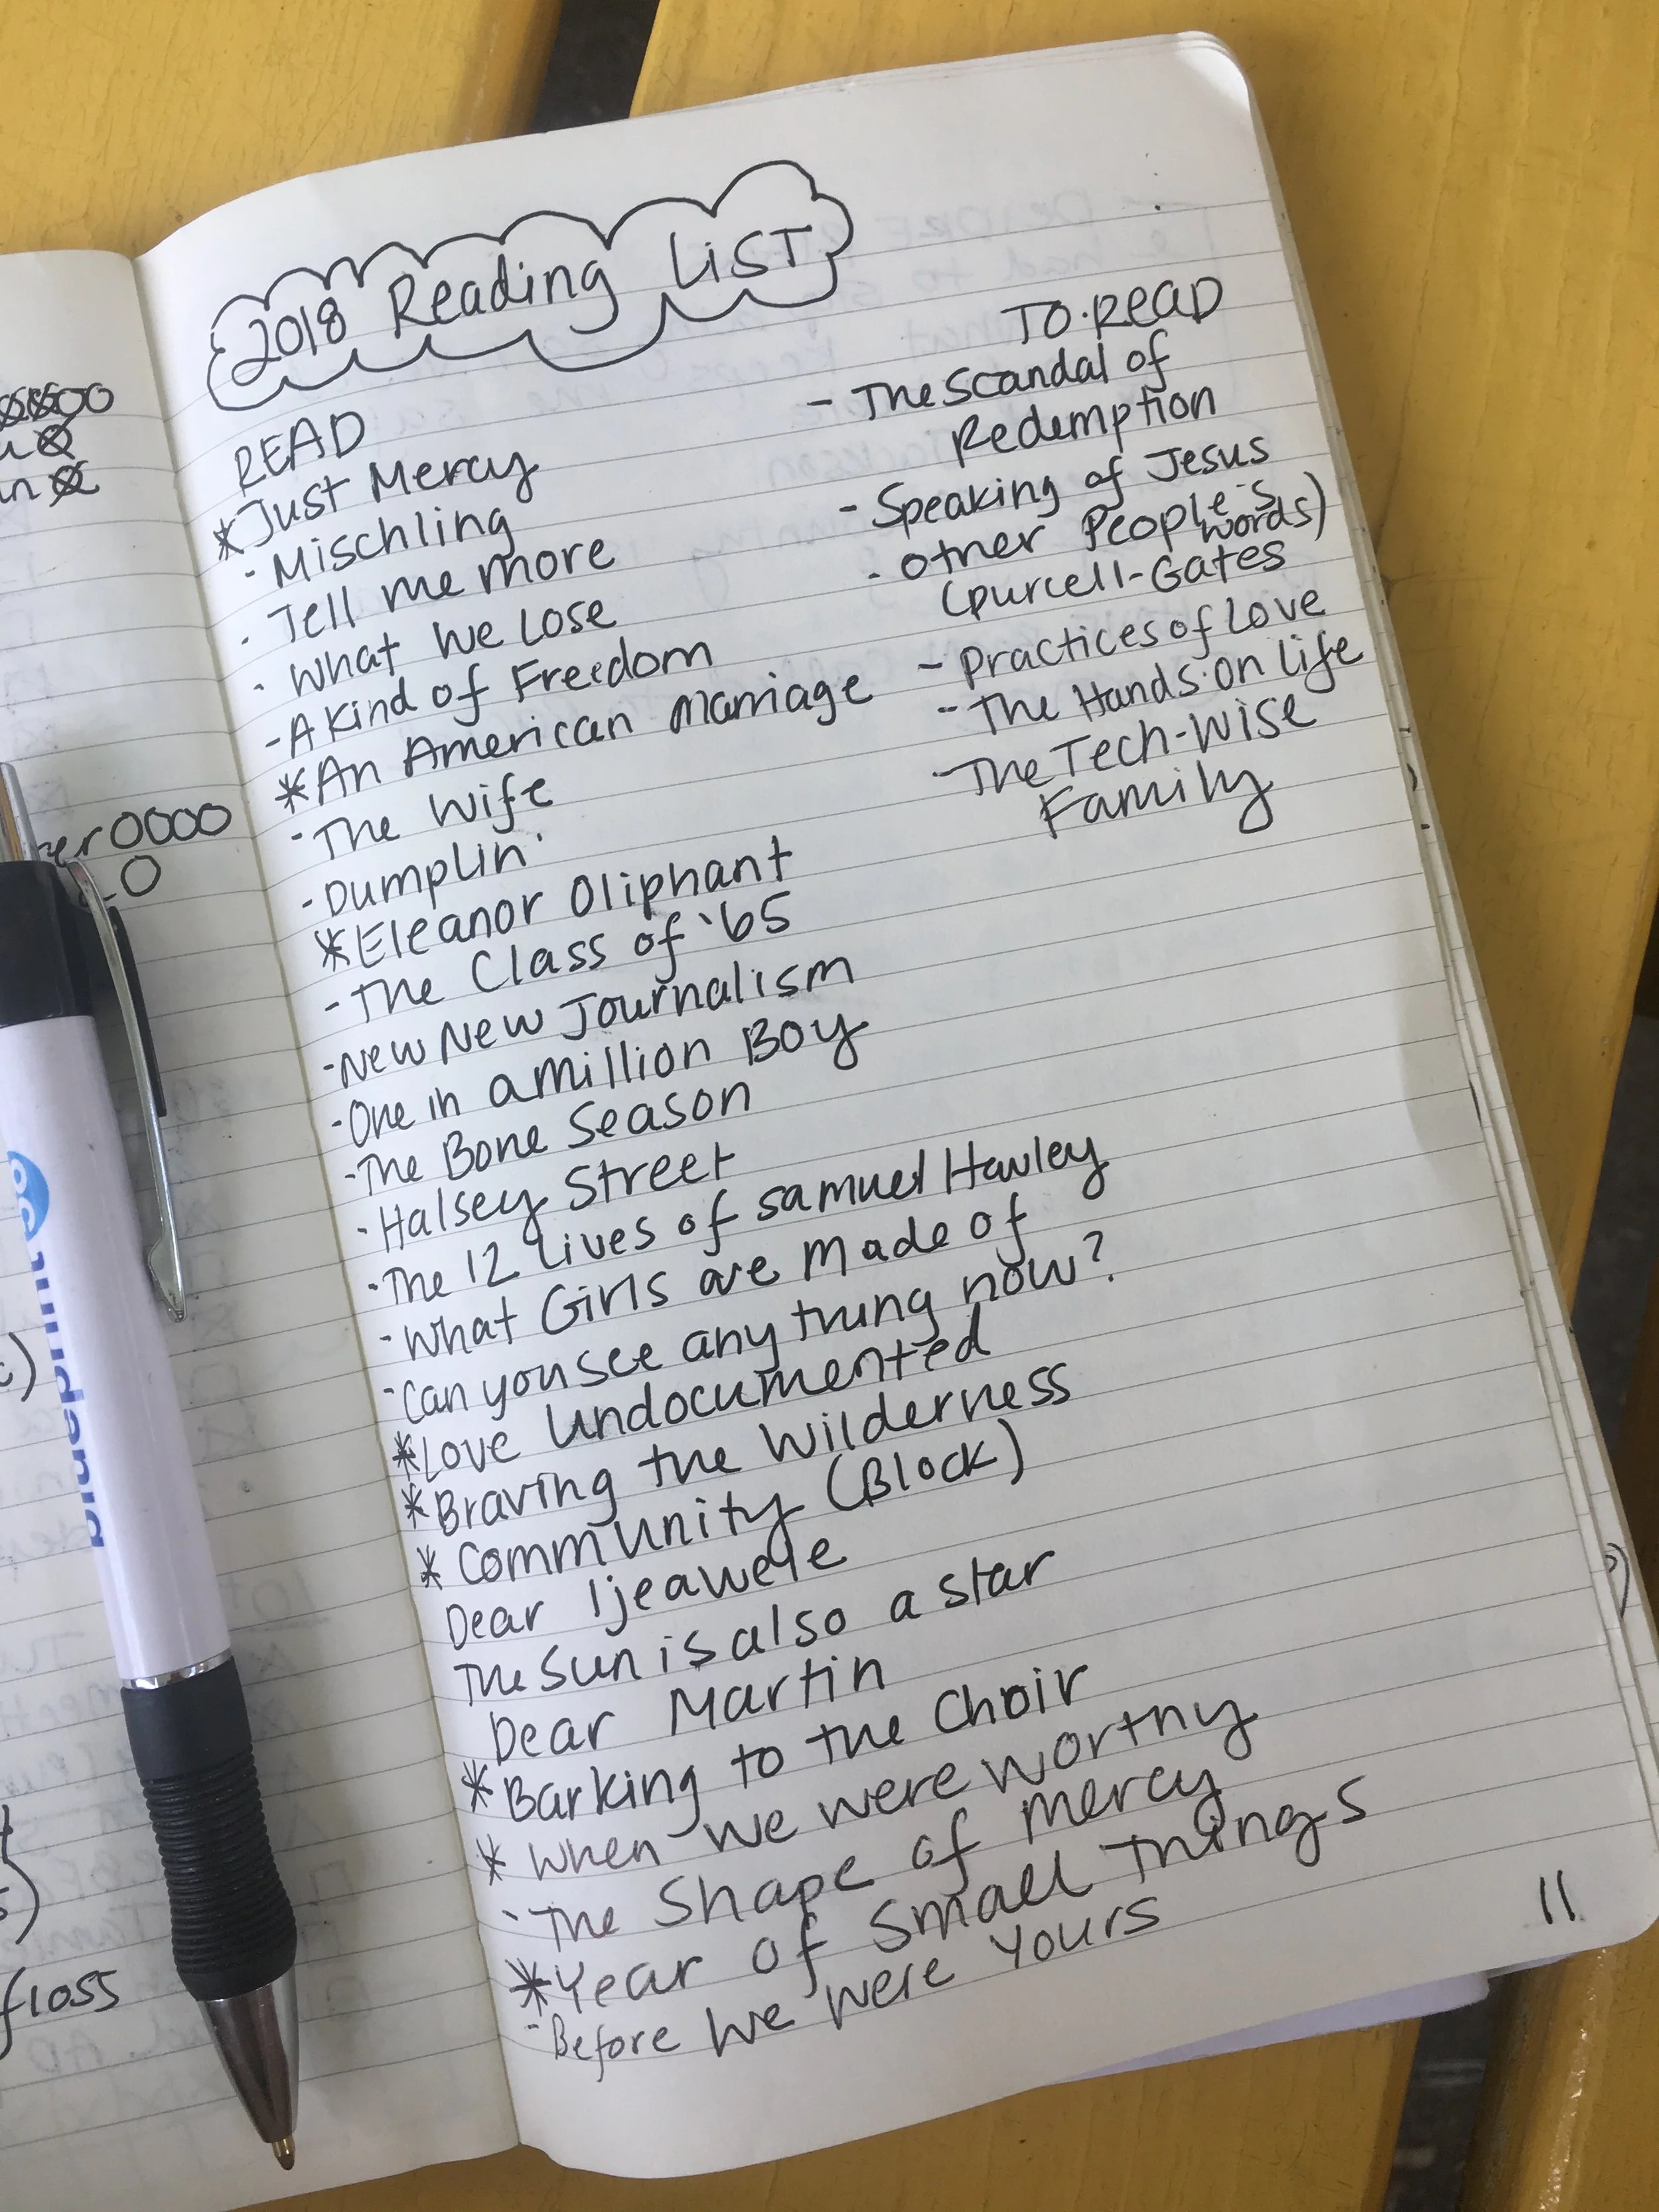 2018 Reading LiST
READ
*Just Mercy
- Mischling
- Tell me more
- What We Lose
- A Kind of Freedom
*An American Marriage
- The Wife
- Dumplin'
*Eleanor Oliphant
- The Class of '65
- New New Journalism
- One in a million Boy
- The Bone Season
- Halsey Street
- The 12 Lives of Samuel Hawley
- What Girls are Made of
- Can you see any thing now?
*Love Undocumented
*Braving the Wilderness
* Community (Block)
Dear Ijeawele
The Sun is also a star
Dear Martin
*Barking to the Choir
* When we were worthy
- The Shape of mercy
*Year of Small Things
- Before We Were Yours
TO·READ
- The Scandal of
Redemption
- Speaking of Jesus
- other People's
words)
(purcell-Gates
- Practices of Love
- The Hands·on Life
- The Tech-Wise
Family
11
blueprint
floss